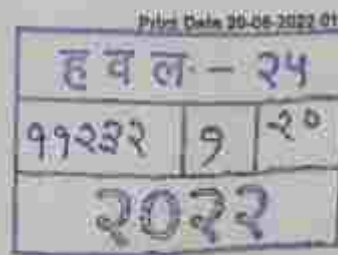 Print Date 20-06-2022 01
हवल - २५
११२३२ १ २०
२०२२